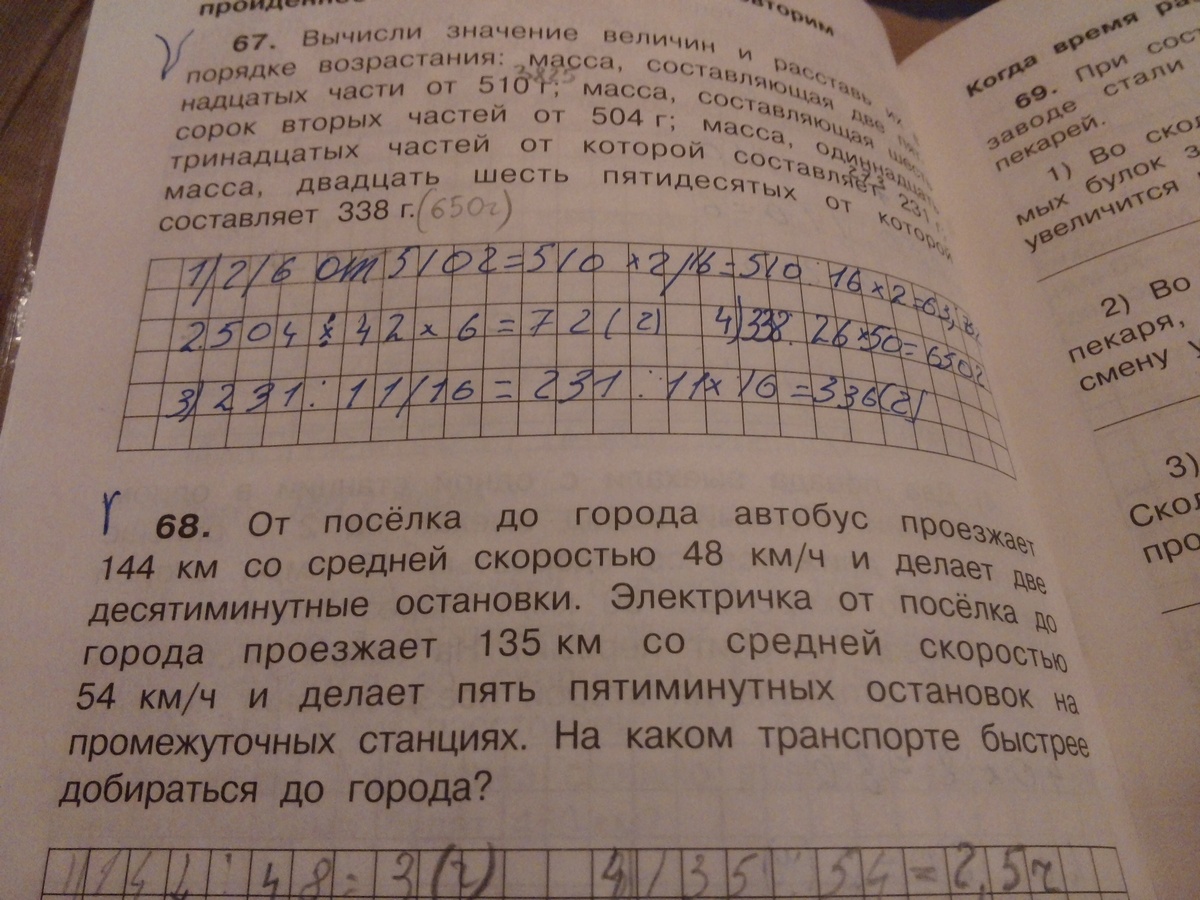 пройденное
повторим
67. Вычисли значение величин и расставь их в
порядке возрастания: масса, составляющая две пят-
надцатых части от 510 г; масса, составляющая шесть
сорок вторых частей от 504 г; масса, одиннадцать
тринадцатых частей от которой составляет 231 г;
масса, двадцать шесть пятидесятых от которой
составляет 338 г. (650г)
1) 2/6 от 510г = 510 × 2/16 = 510 : 16 × 2 = 63,
2 504 : 42 × 6 = 72 (г) 4) 338 : 26 × 50 = 650г
3) 231 : 11/16 = 231 : 11 × 16 = 336 (г)
68. От посёлка до города автобус проезжает
144 км со средней скоростью 48 км/ч и делает две
десятиминутные остановки. Электричка от посёлка до
города проезжает 135 км со средней скоростью
54 км/ч и делает пять пятиминутных остановок на
промежуточных станциях. На каком транспорте быстрее
добираться до города?
1) 144 : 48 = 3 (г) 4) 135 : 54 = 2,5г
Когда время ра
69. При сост
заводе стали
пекарей.
1) Во ско
мых булок з
увеличится
2) Во
пекаря,
смену
3)
Скол
про